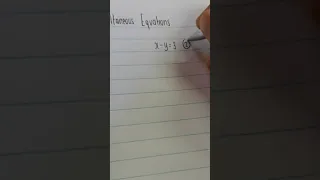 ltaneous Equations
x-y=3